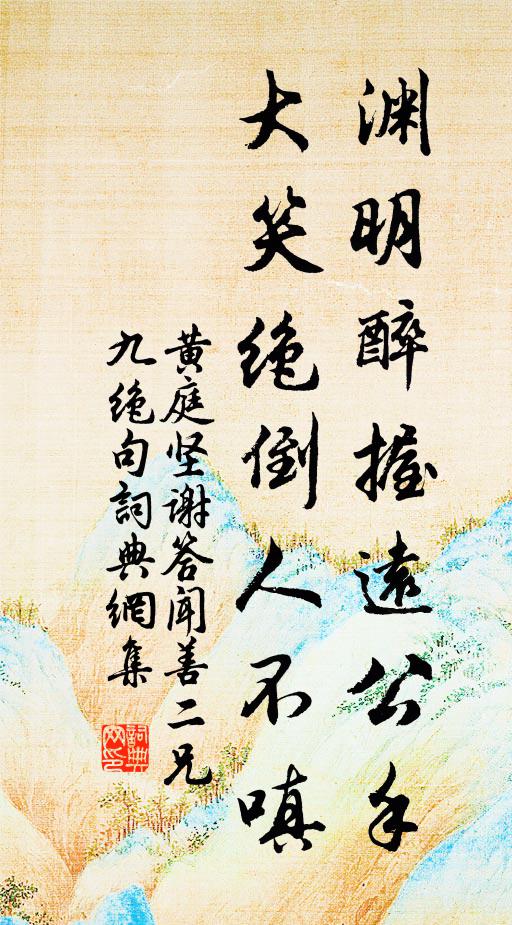 渊明醉握遠公手
大笑绝倒人不嗔
黄庭坚谢答闻善二兄
九绝句詞典網集
詞典网印